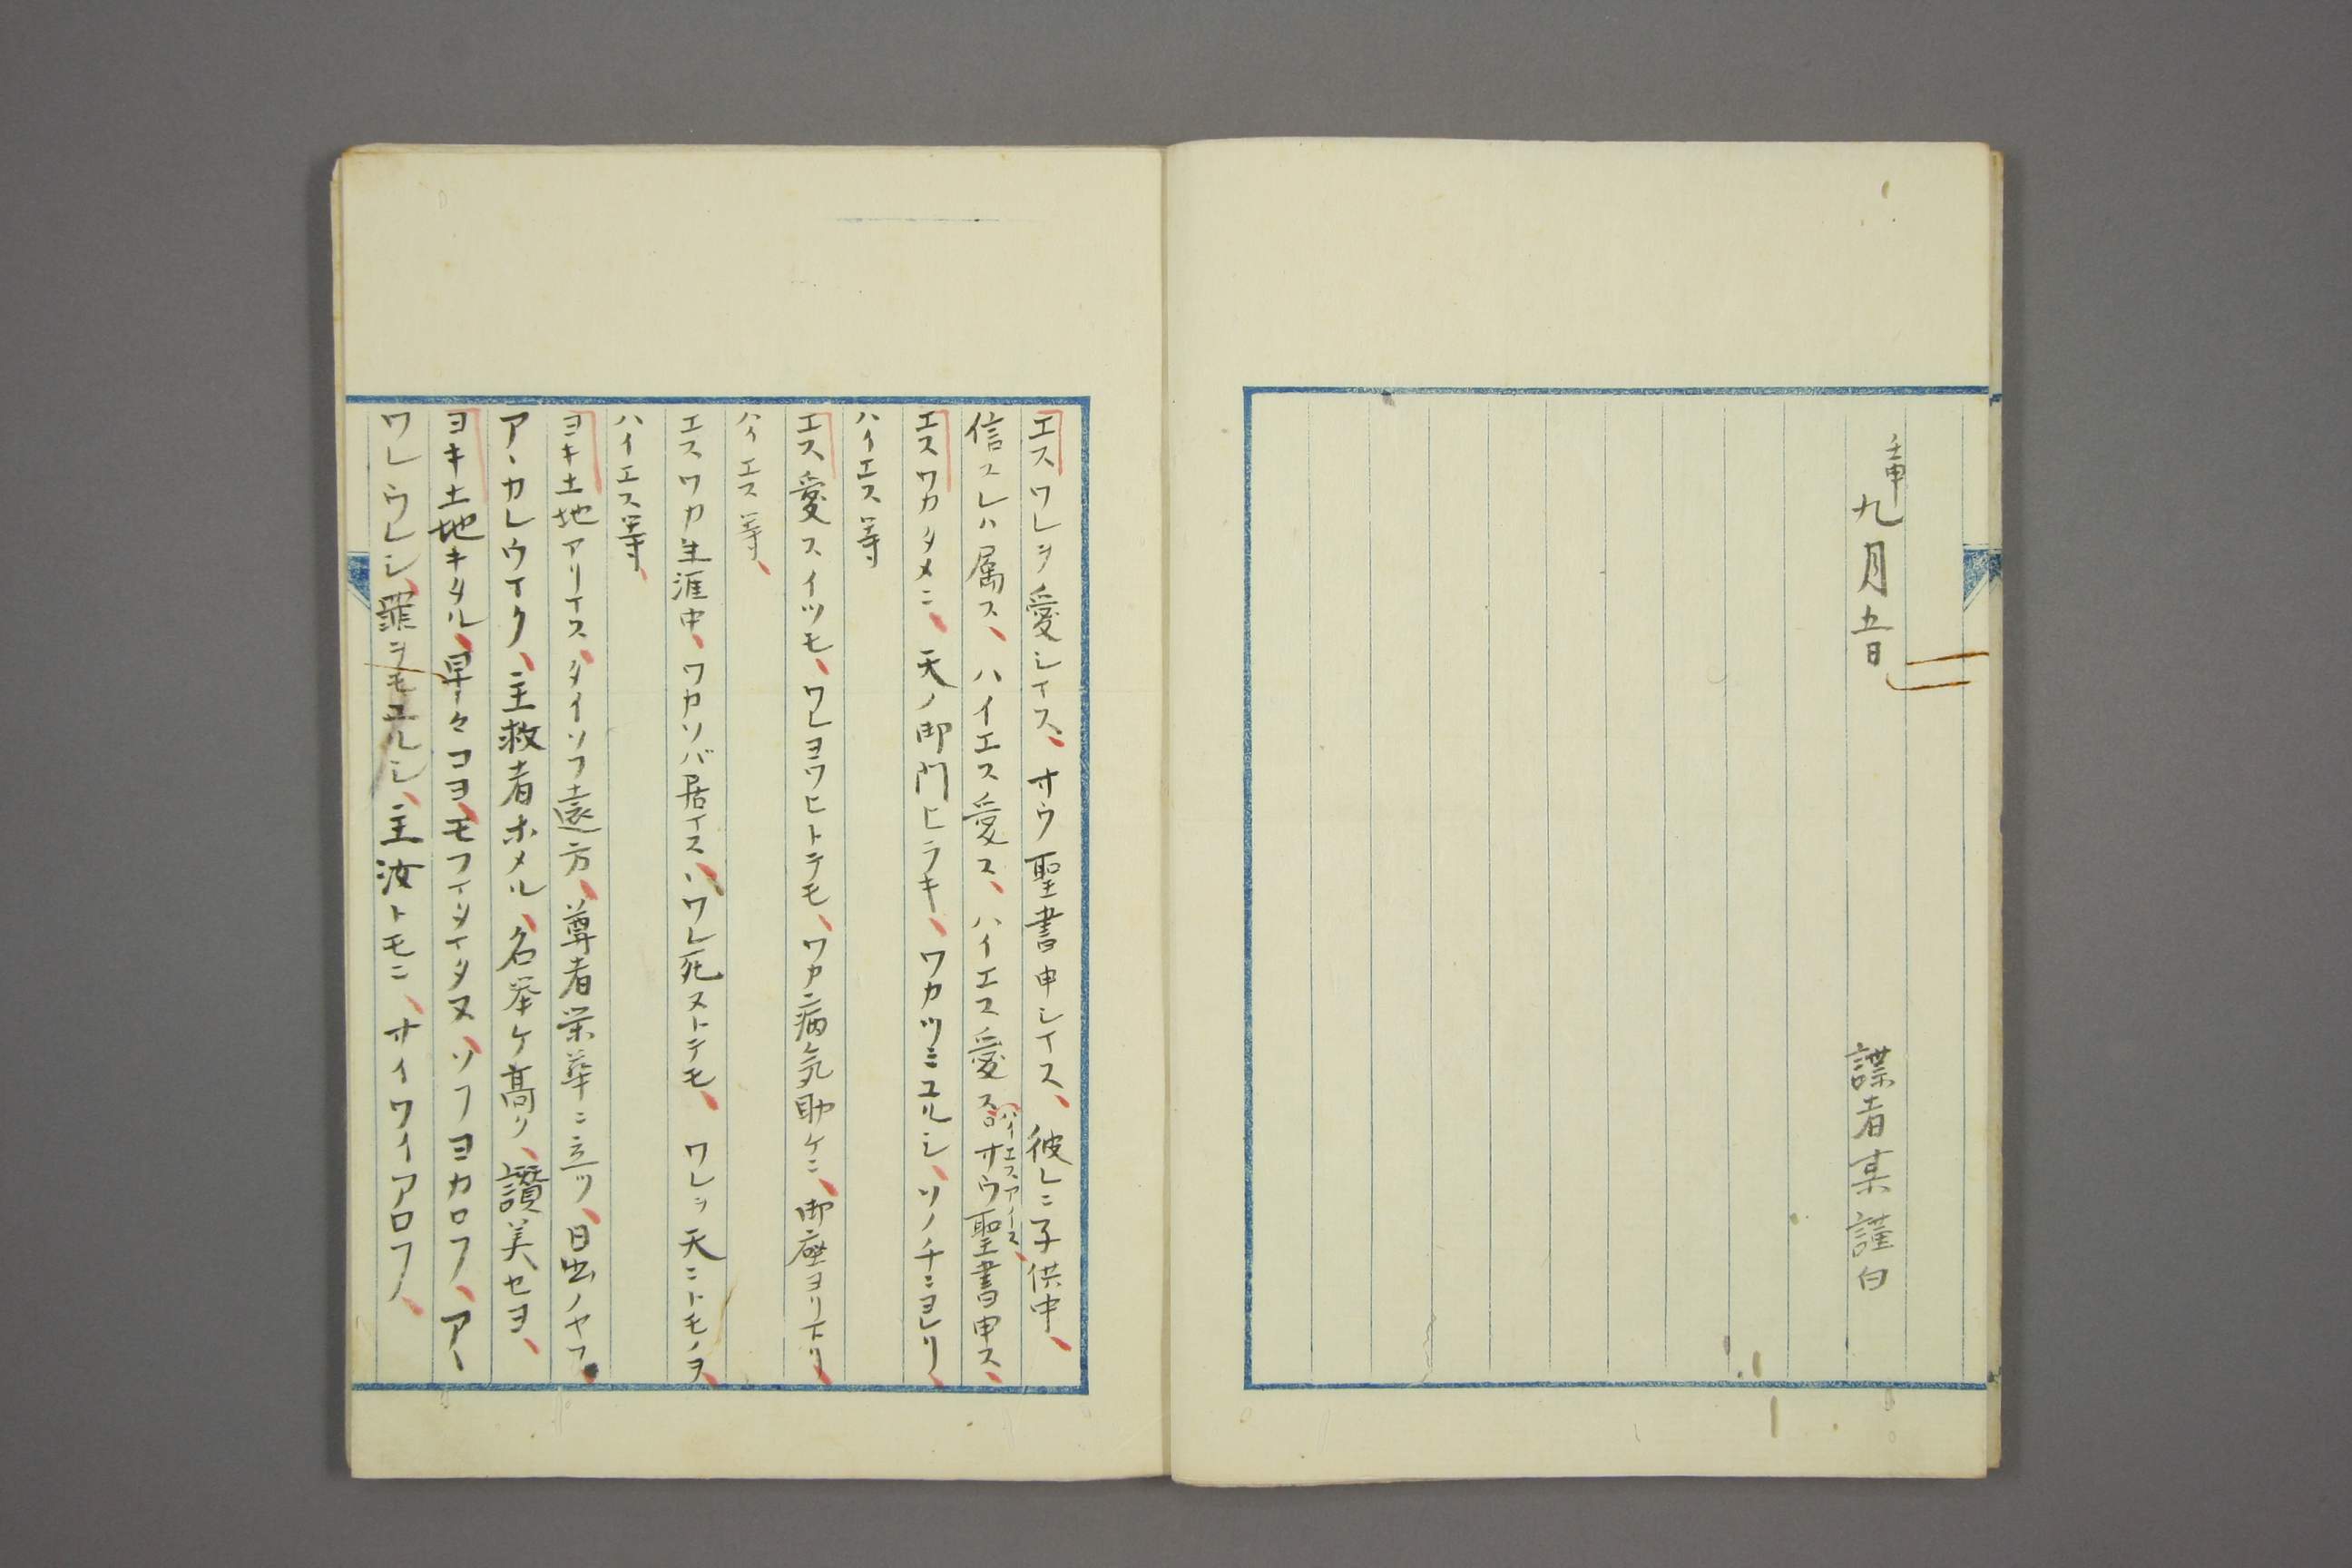 壬申九月五日 諜者某謹白
エスワレヲ愛シイス、オウ聖書申シイス、彼レニ子供中、
信スレハ属ス、ハイエス愛ス、ハイエス愛ス、ハイエスアイス、オウ聖書申ス、
エスワカタメニ、天ノ御門ヒラキ、ワカツミユルシ、ソノチニヨレリ、
ハイエス等
エス愛スイツモ、ワレヨワヒトテモ、ワカ病気助ケニ、御座ヨリ下リ、
ハイエス等、
エスワカ生涯中、ワカソバ居イス、ワレ死ストテモ、ワレヲ天ニトモノヲ、
ハイエス等、
ヨキ土地アリイス、タイソフ遠方、尊者栄華ニ立ツ、日出ノヤフ、
アヽカレウイク、主救者ホメル、名挙ケ高ク、讃美セヨ、
ヨキ土地キタル、早々コヨ、モフイタイタヌ、ソフヨカロフ、アヽ
ワレウレシ、罪ヲモユルシ、主汝トモニ、オイワイアロフ、